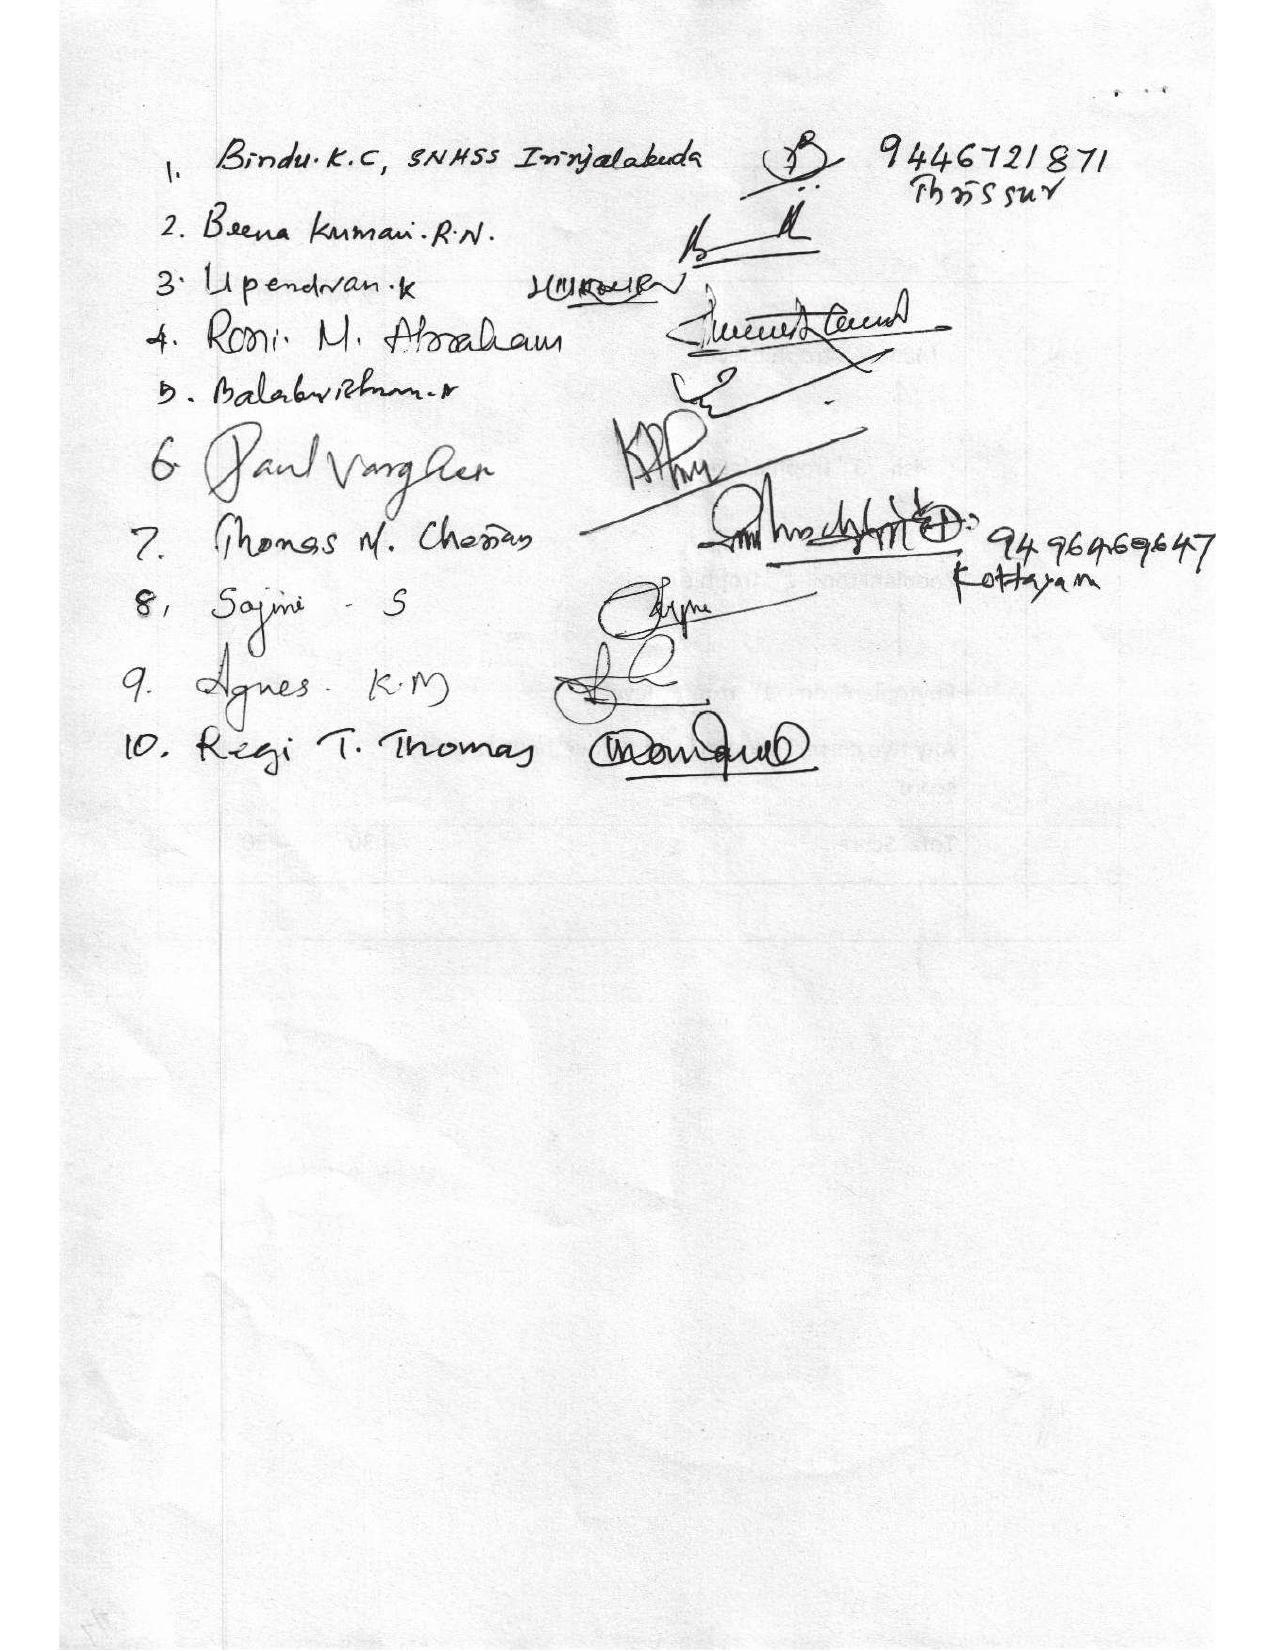 1. Bindu.K.C, SNHSS Irinjalakuda 9446721871
Thrissur
2. Beena Kumari.R.N.
3. Upendran.K
4. Roni. M. Abraham
5. Balakrishnan.
6. Paul Varghese
7. Thomas M. Cherian 9496469647
Kottayam
8, Sajini - S
9. Agnes. K.M
10. Regi T. Thomas